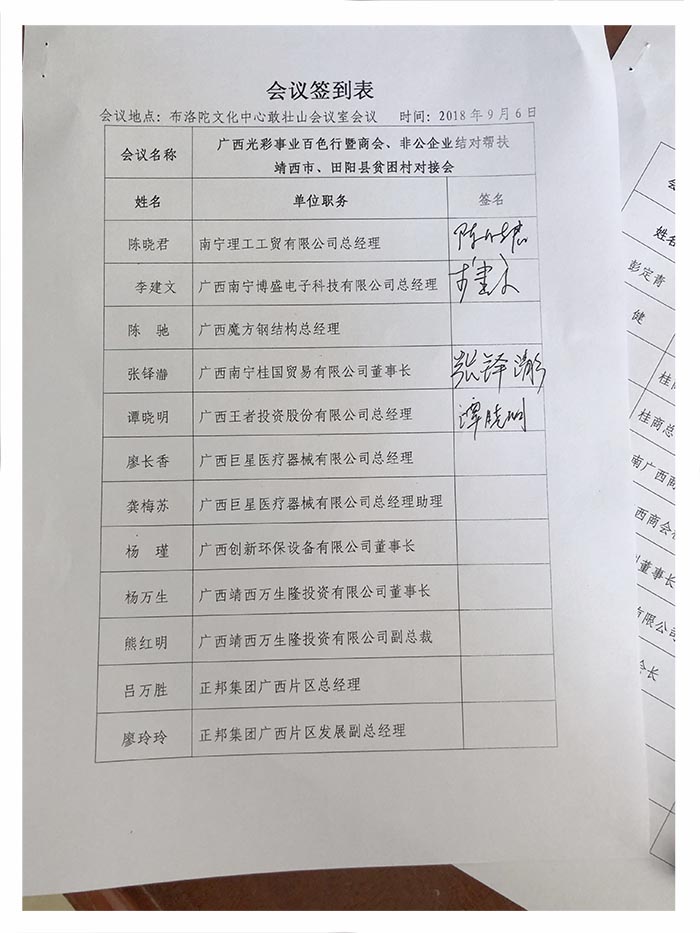 会议签到表
会议地点：布洛陀文化中心敢壮山会议室会议 时间：2018年9月6日
会议名称 广西光彩事业百色行暨商会、非公企业结对帮扶
靖西市、田阳县贫困村对接会
姓名 单位职务 签名
陈晓君 南宁理工工贸有限公司总经理
李建文 广西南宁博盛电子科技有限公司总经理 李建文
陈 驰 广西魔方钢结构总经理
张铎瀞 广西南宁桂国贸易有限公司董事长 张铎
谭晓明 广西王者投资股份有限公司总经理 谭晓明
廖长香 广西巨星医疗器械有限公司总经理
龚梅苏 广西巨星医疗器械有限公司总经理助理
杨 瑾 广西创新环保设备有限公司董事长
杨万生 广西靖西万生隆投资有限公司董事长
熊红明 广西靖西万生隆投资有限公司副总裁
吕万胜 正邦集团广西片区总经理
廖玲玲 正邦集团广西片区发展副总经理
姓名
彭定青
健
桂商总
南广西商
西商会
董事长
有限公司
会长